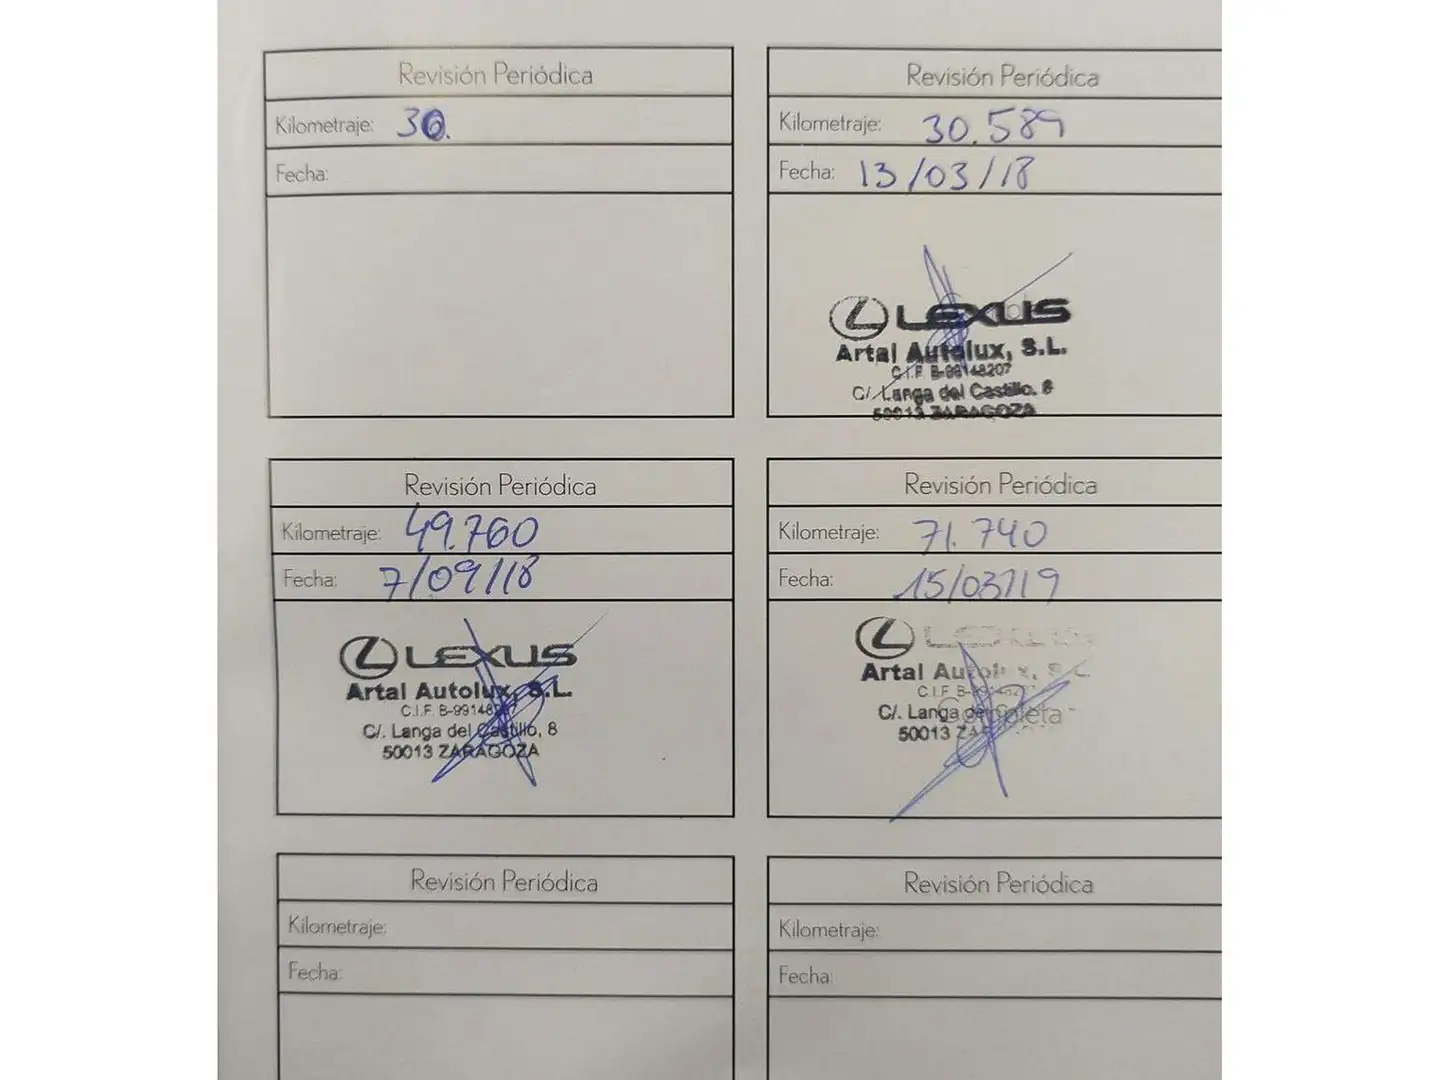 Revisión Periódica
Kilometraje: 30.
Fecha:
Revisión Periódica
Kilometraje: 30.589
Fecha: 13/03/18
LEXUS
Artal Autolux, S.L.
C.I.F. B-99148207
C/. Langa del Castillo, 8
50013 ZARAGOZA
Revisión Periódica
Kilometraje: 49.760
Fecha: 7/09/18
LEXUS
Artal Autolux, S.L.
C.I.F. B-99148207
C/. Langa del Castillo, 8
50013 ZARAGOZA
Revisión Periódica
Kilometraje: 71.740
Fecha: 15/03/19
LEXUS
Artal Autolux, S.L.
C.I.F.
C/. Langa del
50013
Revisión Periódica
Kilometraje:
Fecha:
Revisión Periódica
Kilometraje:
Fecha: